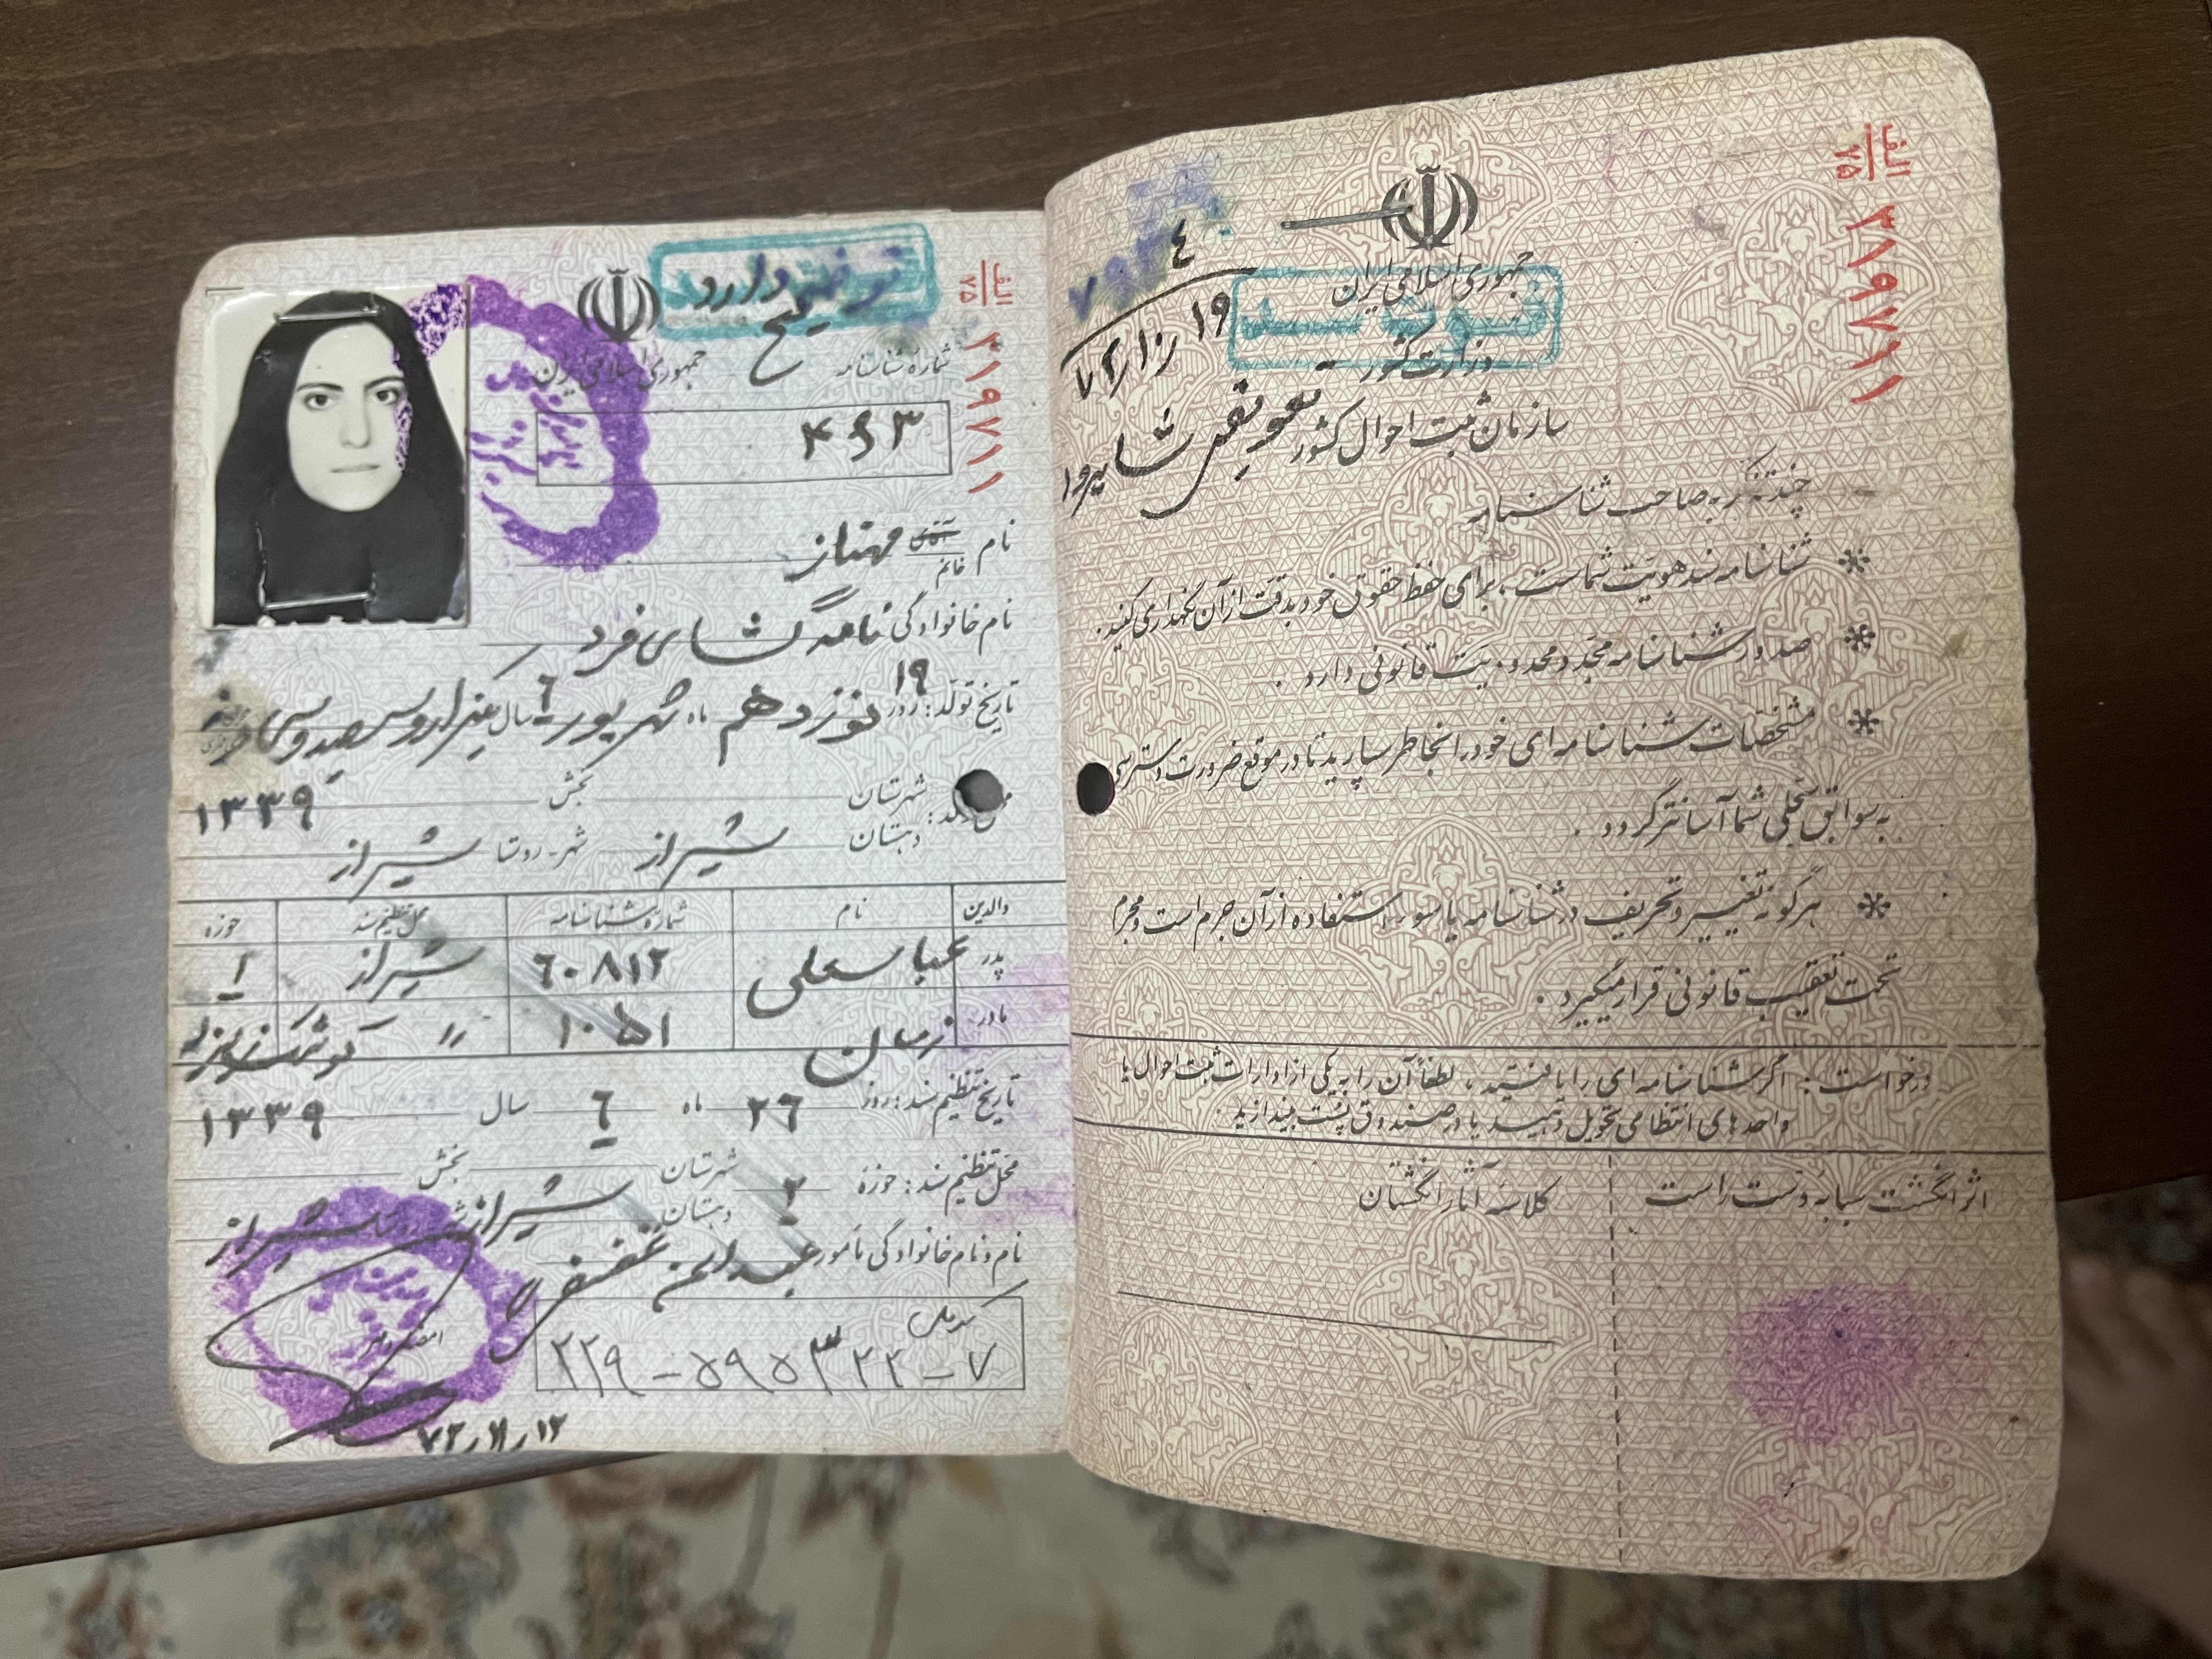 توضیح دارد
شماره شناسنامه
جمهوری اسلامی ایران
۴۶۳
الف
۷۵
۳۱۹۷۱۱
نام آقای خانم مهناز
نام خانوادگی نامه گشای فرد
تاریخ تولد: روز ۱۹ نوزدهم ماه شهریور ۶ سال یکهزار و سیصد و سی و نه
۱۳۳۹
شهرستان بخش
دهستان شیراز شهر-روستا شیراز
والدین نام شماره شناسنامه محل تنظیم سند حوزه
پدر عباسعلی ۶۰۸۱۲ شیراز ۱
مادر ۱۰۵۱ "
تاریخ تنظیم سند: روز ۲۶ ماه ۶ سال ۱۳۳۹
محل تنظیم سند: حوزه ۲ شهرستان بخش
دهستان شیراز شیراز
نام و نام خانوادگی مأمور
کد ملی
۲۲۹-۵۹۵۳۲۲-۷
الف
۷۵
۳۱۹۷۱۱
جمهوری اسلامی ایران
وزارت کشور
سازمان ثبت احوال کشور
۴
تعویض شد
چند تذکر به صاحب شناسنامه
* شناسنامه سند هویت شماست، برای حفظ حقوق خود بدقت از آن نگهداری کنید.
* صدور شناسنامه مجدد محدودیت قانونی دارد.
* مشخصات شناسنامه ای خود را بخاطر بسپارید تا در موقع ضرورت دسترسی
به سوابق سجلی شما آسانتر گردد.
* هرگونه تغییر و تحریف در شناسنامه یا سوء استفاده از آن جرم است و مجرم
تحت تعقیب قانونی قرار میگیرد.
درخواست: اگر شناسنامه ای را یافتید، لطفاً آن را به یکی از ادارات ثبت احوال یا
واحدهای انتظامی تحویل دهید یا در صندوق پست بیندازید.
اثر انگشت سبابه دست راست
کلاسه آثار انگشتان